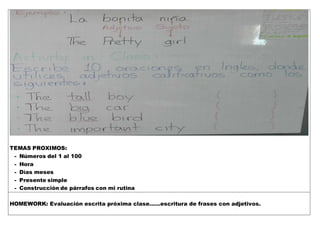 Ejemplo:
La bonita niña
Adjetivo Sujeto
The Pretty girl
Activity in Class:
Escribe 10 oraciones en Ingles, donde
utilices adjetivos calificativos como los
siguientes:
• The tall boy ( )
• The big car ( )
• The blue bird ( )
• The important city ( )
TEMAS PROXIMOS:
- Números del 1 al 100
- Hora
- Días meses
- Presente simple
- Construcción de párrafos con mi rutina
HOMEWORK: Evaluación escrita próxima clase......escritura de frases con adjetivos.